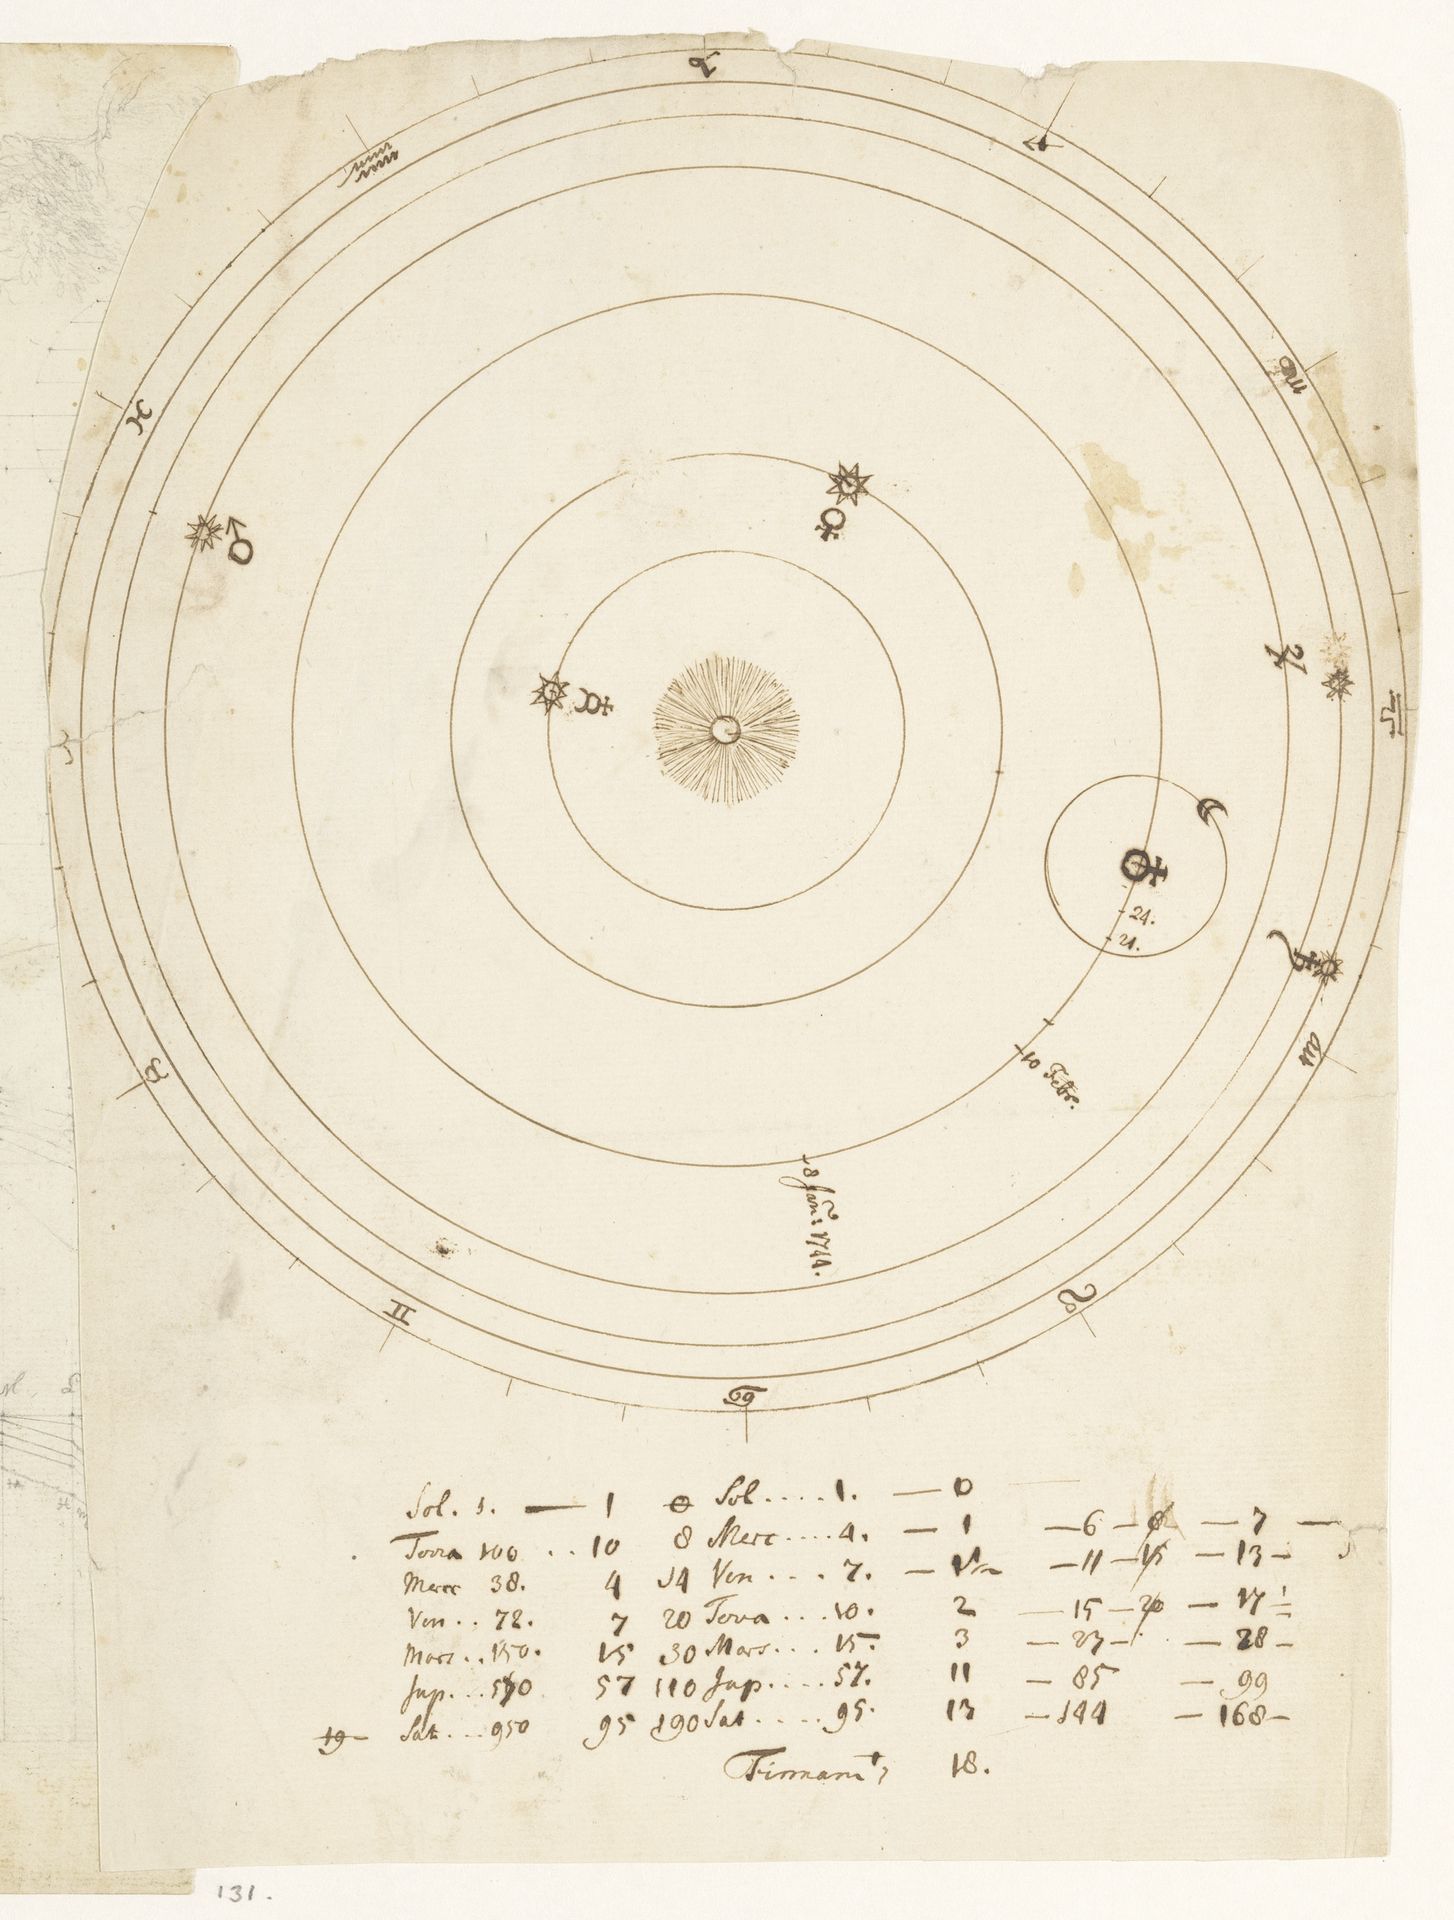 ♑
♐
♒
♏
♓
♂
♀
☿
♃
♎
♈
24.
21.
♄
♍
10 Febr.
♉
8 Jan: 1744.
♊
♌
♋
Sol. 1. — 1 0 Sol.... 1. — 0
Terra 100 .. 10 8 Merc.... 4. — 1 — 6 — 8 — 7 —
Merc 38. 4 14 Ven.... 7. — — 11 — 15 — 13 —
Ven.. 72. 7 20 Terra... 10. 2 — 15 — 20 — 17 1/2
Mars.. 150. 15 30 Mars... 15. 3 — 23 — — 28 —
Jup... 570 57 110 Jup.... 57. 11 — 85 — 99
19 Sat... 950 95 190 Sat.... 95. 13 — 144 — 168 —
Firmamt 18.
131.